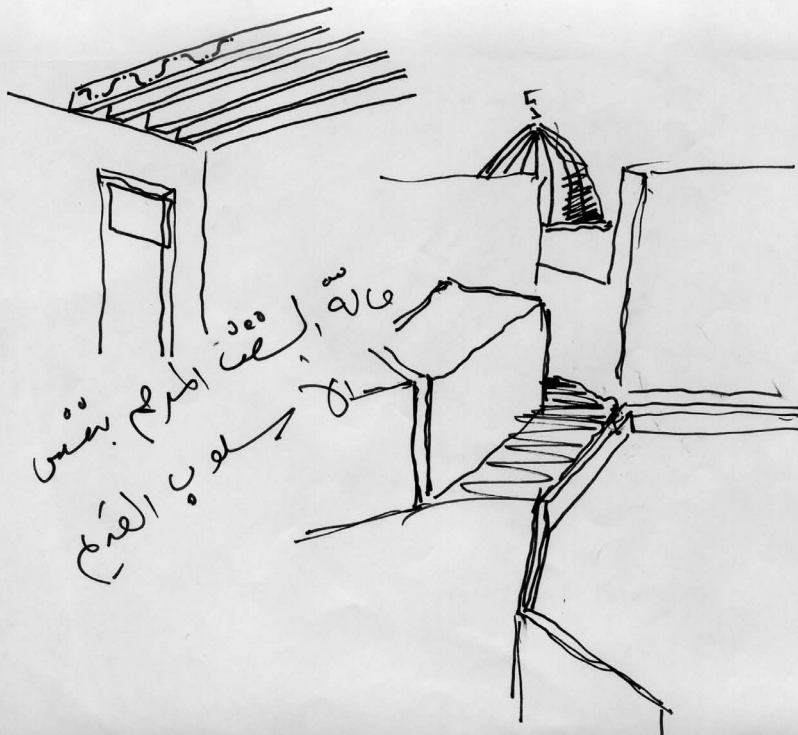 حالة السقف المرمم بنفس
الاسلوب القديم